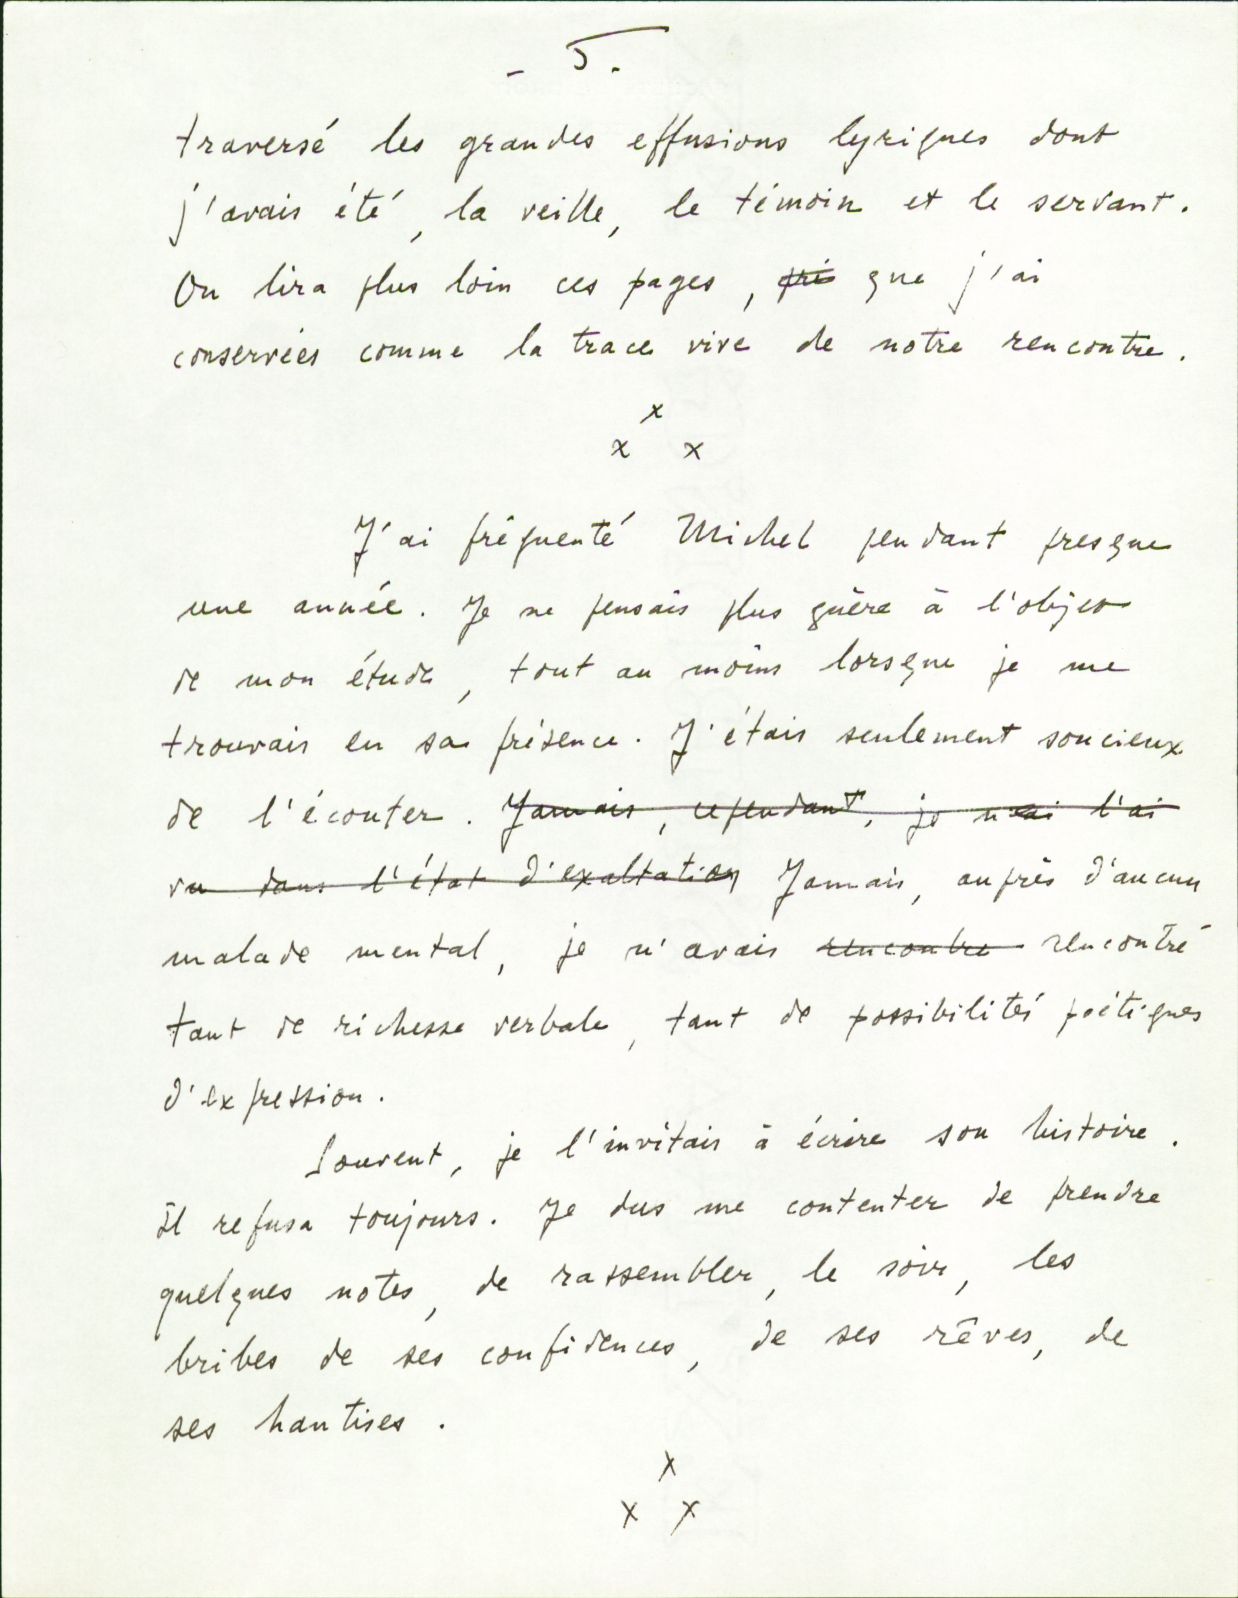 - 5.
traversé les grandes effusions lyriques dont
j'avais été, la veille, le témoin et le servant.
On lira plus loin ces pages, ~~pri~~ que j'ai
conservées comme la trace vive de notre rencontre.
x
x x
J'ai fréquenté Michel pendant presque
une année. Je ne pensais plus guère à l'objet
de mon étude, tout au moins lorsque je me
trouvais en sa présence. J'étais seulement soucieux
de l'écouter. ~~Jamais, cependant, je ne l'ai~~
~~vu dans l'état d'exaltation~~ Jamais, auprès d'aucun
malade mental, je n'avais ~~rencontre~~ rencontré
tant de richesse verbale, tant de possibilités poétiques
d'expression.
Souvent, je l'invitais à écrire son histoire.
Il refusa toujours. Je dus me contenter de prendre
quelques notes, de rassembler, le soir, les
bribes de ses confidences, de ses rêves, de
ses hantises.
x
x x